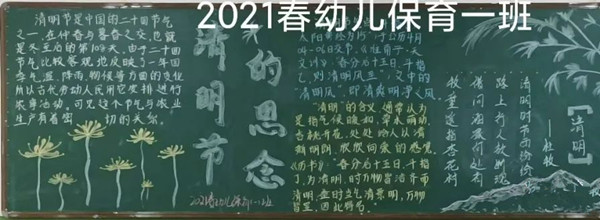 2021春幼儿保育一班
清明节是中国的二十四节气
之一,在仲春与暮春之交,也就
是冬至后的第108天,由于二十四
节气比较客观地反映了一年四
季气温、降雨、物候等方面的变化
所以古代劳动人民用它安排进行
农事活动,可见这个节气与农业
生产有着密 切的关系。
清明节
的思念
2021春幼儿保育一班
04-06日交节,
则清明风至",文中的
"清明风",即清爽明净之风
"清明"的含义,通常认为
是指气候暖和,草木萌动,
杏桃开花,处处给人以清
新明朗、欣欣向荣的感觉。
《历书》:"春分后十五日,斗指
丁,为清明,时万物皆洁齐而
清明,盖时当气清景明,万物
皆显,因此得名。"
[清明]
——杜牧
清明时节雨纷纷
路上行人欲断魂
借问酒家何处有
牧童遥指杏花村